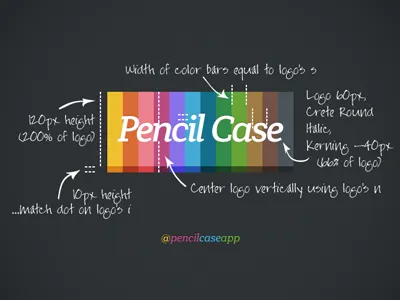 Width of color bars equal to logo's s
120px height
(200% of logo)
Pencil Case
Logo 60px,
Crete Round
Italic,
Kerning -40px
(66% of logo)
10px height
...match dot on logo's i
Center logo vertically using logo's n
@pencilcaseapp